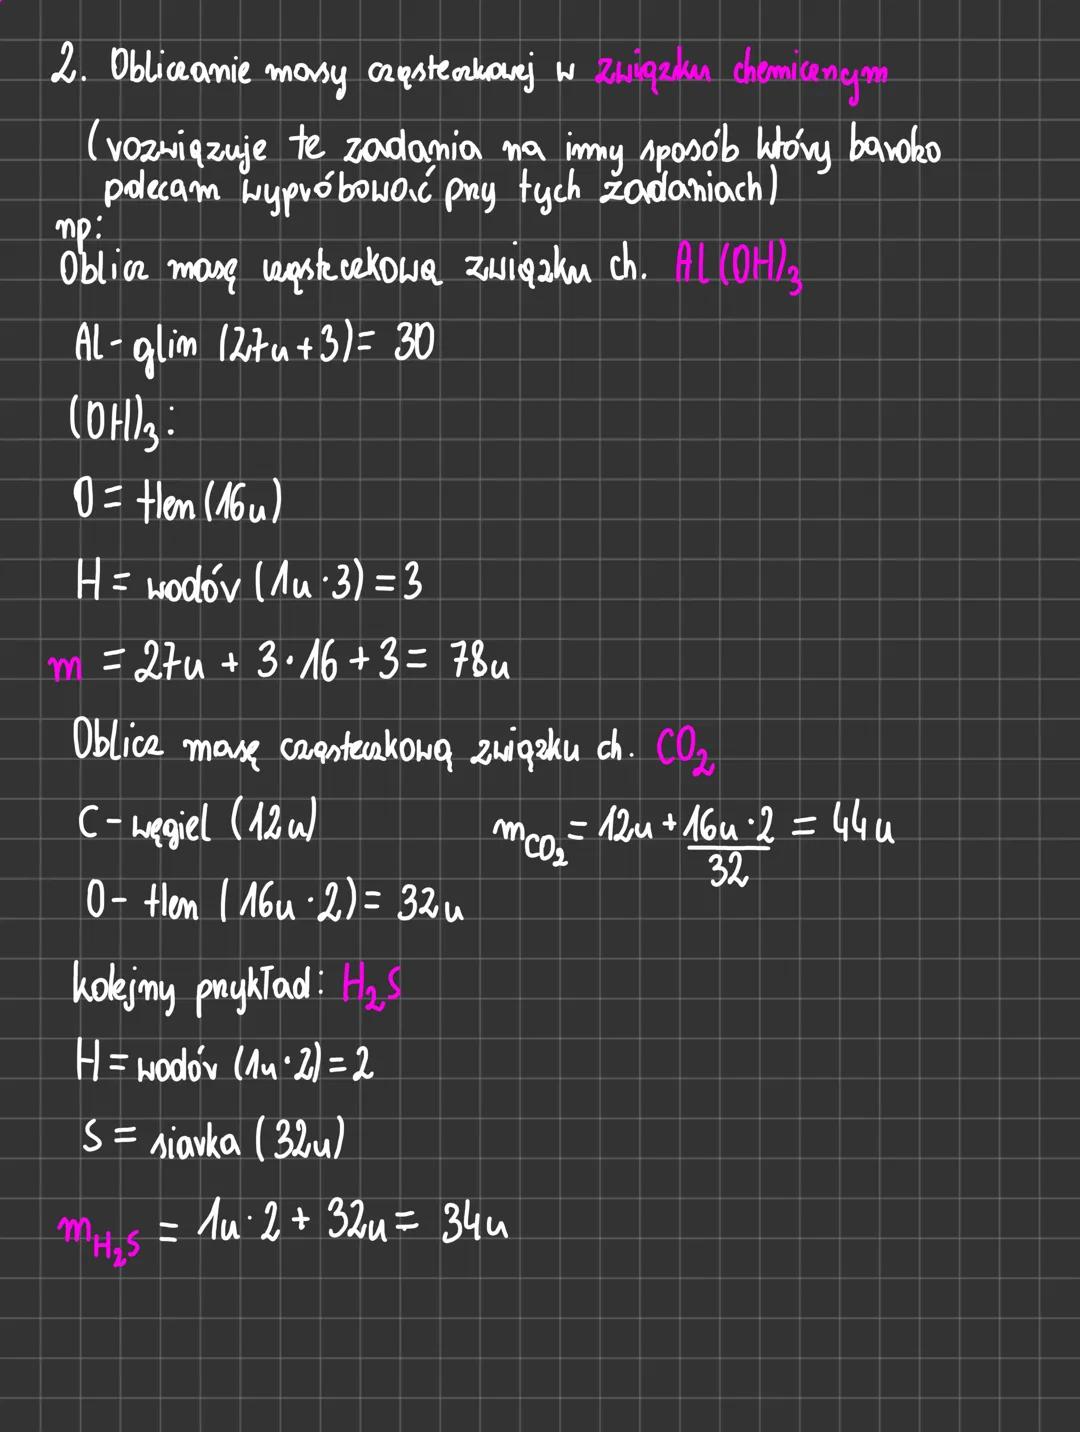 2. Obliczanie masy cząsteczkowej w związku chemicznym
(rozwiązuje te zadania na inny sposób który bardzo
polecam wypróbować przy tych zadaniach)
np:
Oblicz masę cząsteczkową związku ch. Al(OH)₃
Al - glin (27u + 3) = 30
(OH)₃:
O = tlen (16u)
H = wodór (1u · 3) = 3
m = 27u + 3 · 16 + 3 = 78u
Oblicz masę cząsteczkową związku ch. CO₂
C - węgiel (12u) m CO₂ = 12u + 16u · 2 = 44u
32
O - tlen (16u · 2) = 32u
kolejny przykład: H₂S
H = wodór (1u · 2) = 2
S = siarka (32u)
m H₂S = 1u · 2 + 32u = 34u